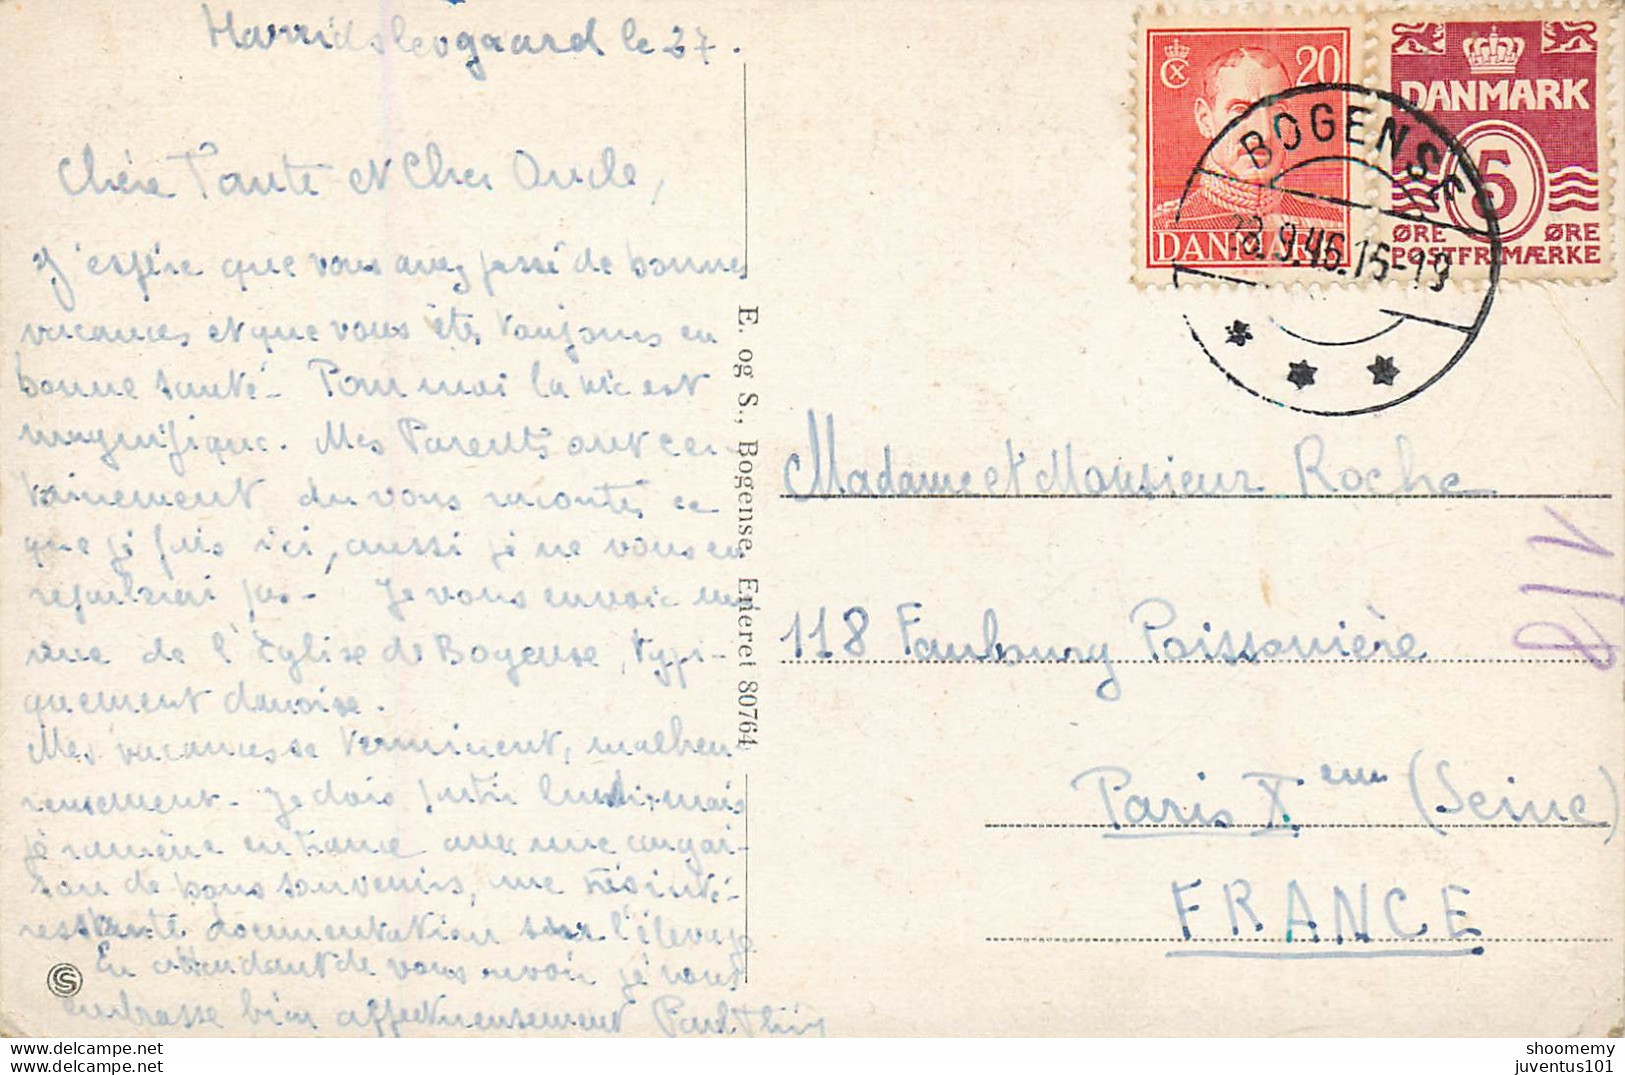 Harridslevgaard le 27.
Chère Tante et Cher Oncle,
J'espère que vous avez passé de bonnes
vacances et que vous êtes toujours en
bonne santé - Pour moi la vie est
magnifique. Mes Parents ont cer-
tainement du vous raconter ce
que je fais ici, aussi je ne vous en
reparlerai pas - Je vous envoie une
vue de l'Eglise de Bogense, typi-
quement danoise.
Mes vacances se terminent, malheu
reusement - Je dois partir lundi, mais
je ramène en France avec une cargai-
son de bons souvenirs, une très inté-
ressante documentation sur l'élevage
En attendant de vous revoir je vous
embrasse bien affectueusement Paul
E. og S., Bogense. Eneret 80764
S
20
DANMARK
DANMARK
5
ØRE ØRE
POSTFRIMÆRKE
BOGENSE
.9.46.16-19
Madame et Monsieur Roche
118 Faubourg Poissonière
Paris X eme (Seine)
FRANCE
shoomemy
juventus101